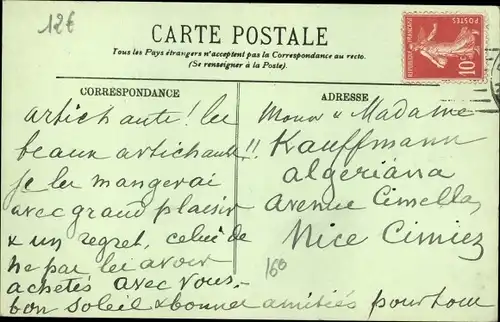 12€
CARTE POSTALE
Tous les Pays étrangers n'acceptent pas la Correspondance au recto.
(Se renseigner à la Poste).
POSTES
REPUBLIQUE FRANÇAISE
10c
CORRESPONDANCE
ADRESSE
artichauts! les
beaux artichauts!!
je les mangerai
avec grand plaisir
& un regret, celui de
ne pas les avoir
achetés avec vous.
bon soleil & bonnes amitiés pour tous
Monsr & Madame
Kauffmann
algeriana
avenue Cimella
Nice Cimiez
160